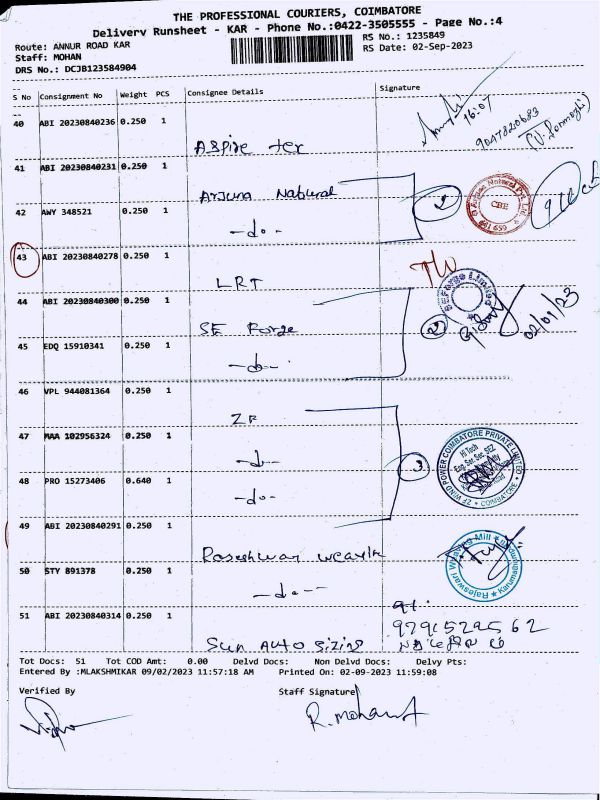 THE PROFESSIONAL COURIERS, COIMBATORE
Delivery Runsheet - KAR - Phone No.:0422-3505555 - Page No.:4
Route: ANNUR ROAD KAR
Staff: MOHAN
DRS No.: DCJB123584904
RS No.: 1235849
RS Date: 02-Sep-2023
S No Consignment No Weight PCS Consignee Details Signature
40 ABI 20230840236 0.250 1 Aspire tex
16:07
9047820683
41 ABI 20230840231 0.250 1 Arjuna Natural
1
CBE
42 AWY 348521 0.250 1 -do-
43 ABI 20230840278 0.250 1 LRT
44 ABI 20230840300 0.250 1 SE Forge
SE Forge Limited
2
45 EDQ 15910341 0.250 1 -do-
46 VPL 944081364 0.250 1 ZF
47 MAA 102956324 0.250 1 -do-
3
ZF WIND POWER COIMBATORE PRIVATE LIMITED
COIMBATORE
Hi Tech
Eng. Ser. Sec. SEZ
48 PRO 15273406 0.640 1 -do-
49 ABI 20230840291 0.250 1
Rajeswari Weaving Mill
50 STY 891378 0.250 1 -do-
51 ABI 20230840314 0.250 1 Sun Auto sizing
9791529562
Tot Docs: 51 Tot COD Amt: 0.00 Delvd Docs: Non Delvd Docs: Delvy Pts:
Entered By :MLAKSHMIKAR 09/02/2023 11:57:18 AM Printed On: 02-09-2023 11:59:08
Verified By Staff Signature
R. Mohan